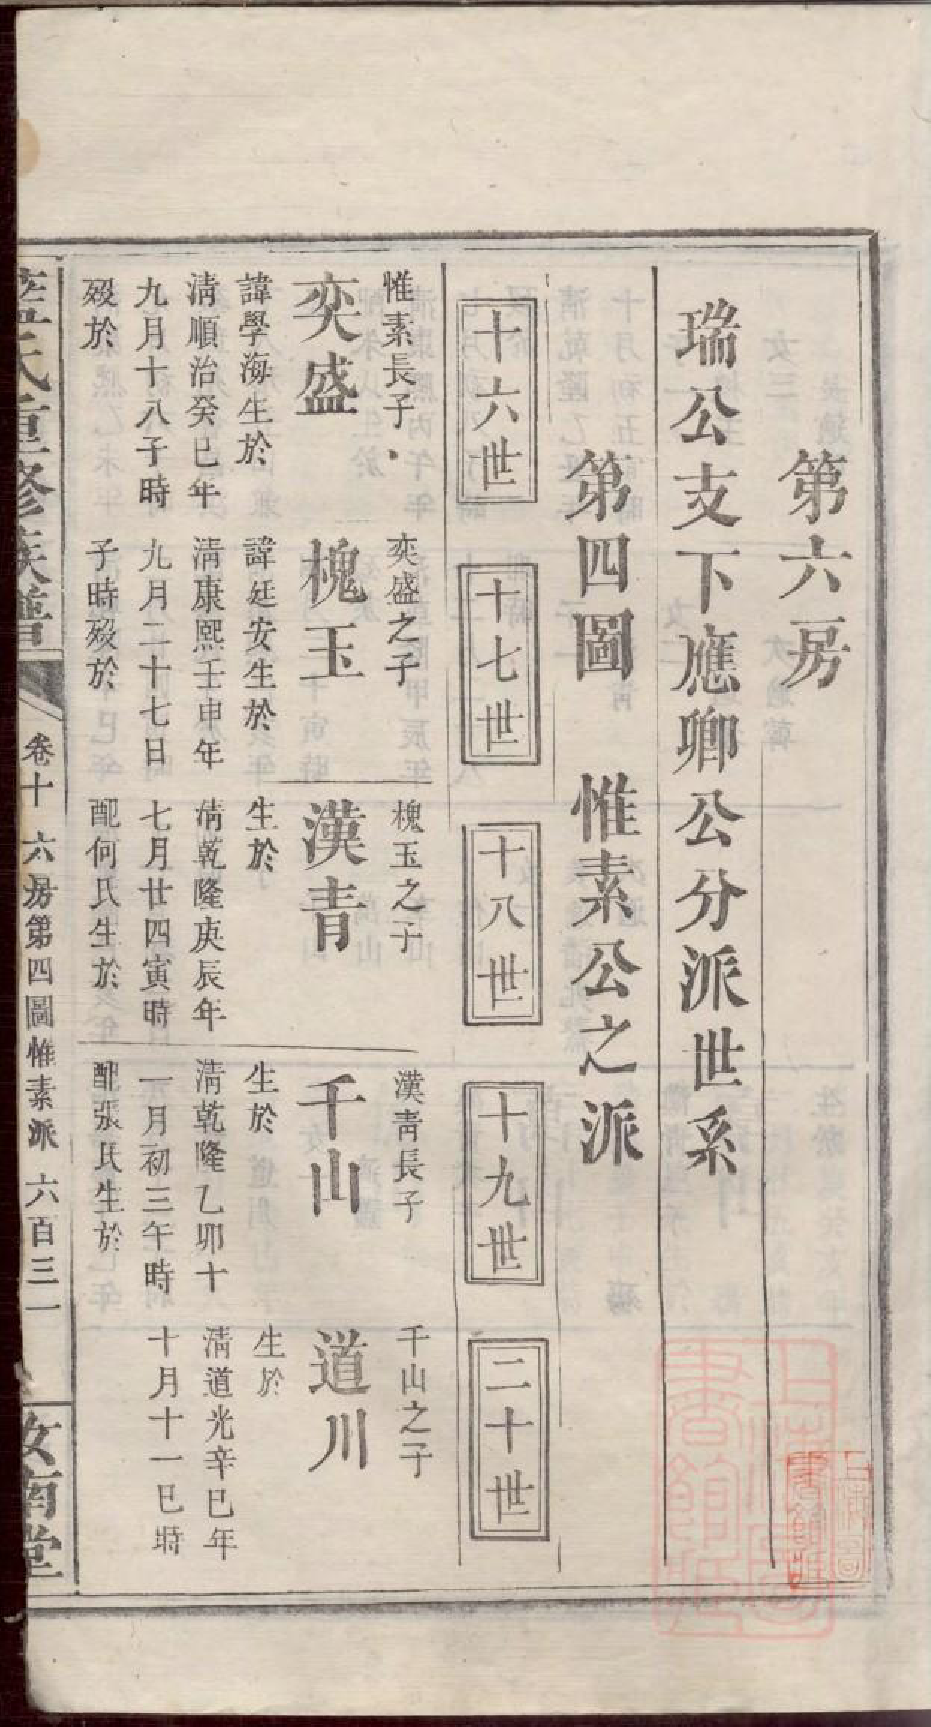 第六房
瑞公支下應卿公分派世系
第四圖　惟素公之派
十六世
十七世
十八世
十九世
二十世
惟素長子
奕盛
諱學海生於
清順治癸巳年
九月十八子時
歿於
奕盛之子
槐玉
諱廷安生於
清康熙壬申年
九月二十七日
子時歿於
槐玉之子
漢青
生於
清乾隆庚辰年
七月廿四寅時
配何氏生於
漢青長子
千山
生於
清乾隆乙卯十
一月初三午時
配張氏生於
千山之子
道川
生於
清道光辛巳年
十月十一巳時
氏重修族譜
卷十
六房第四圖惟素派
六百三一
汝南堂